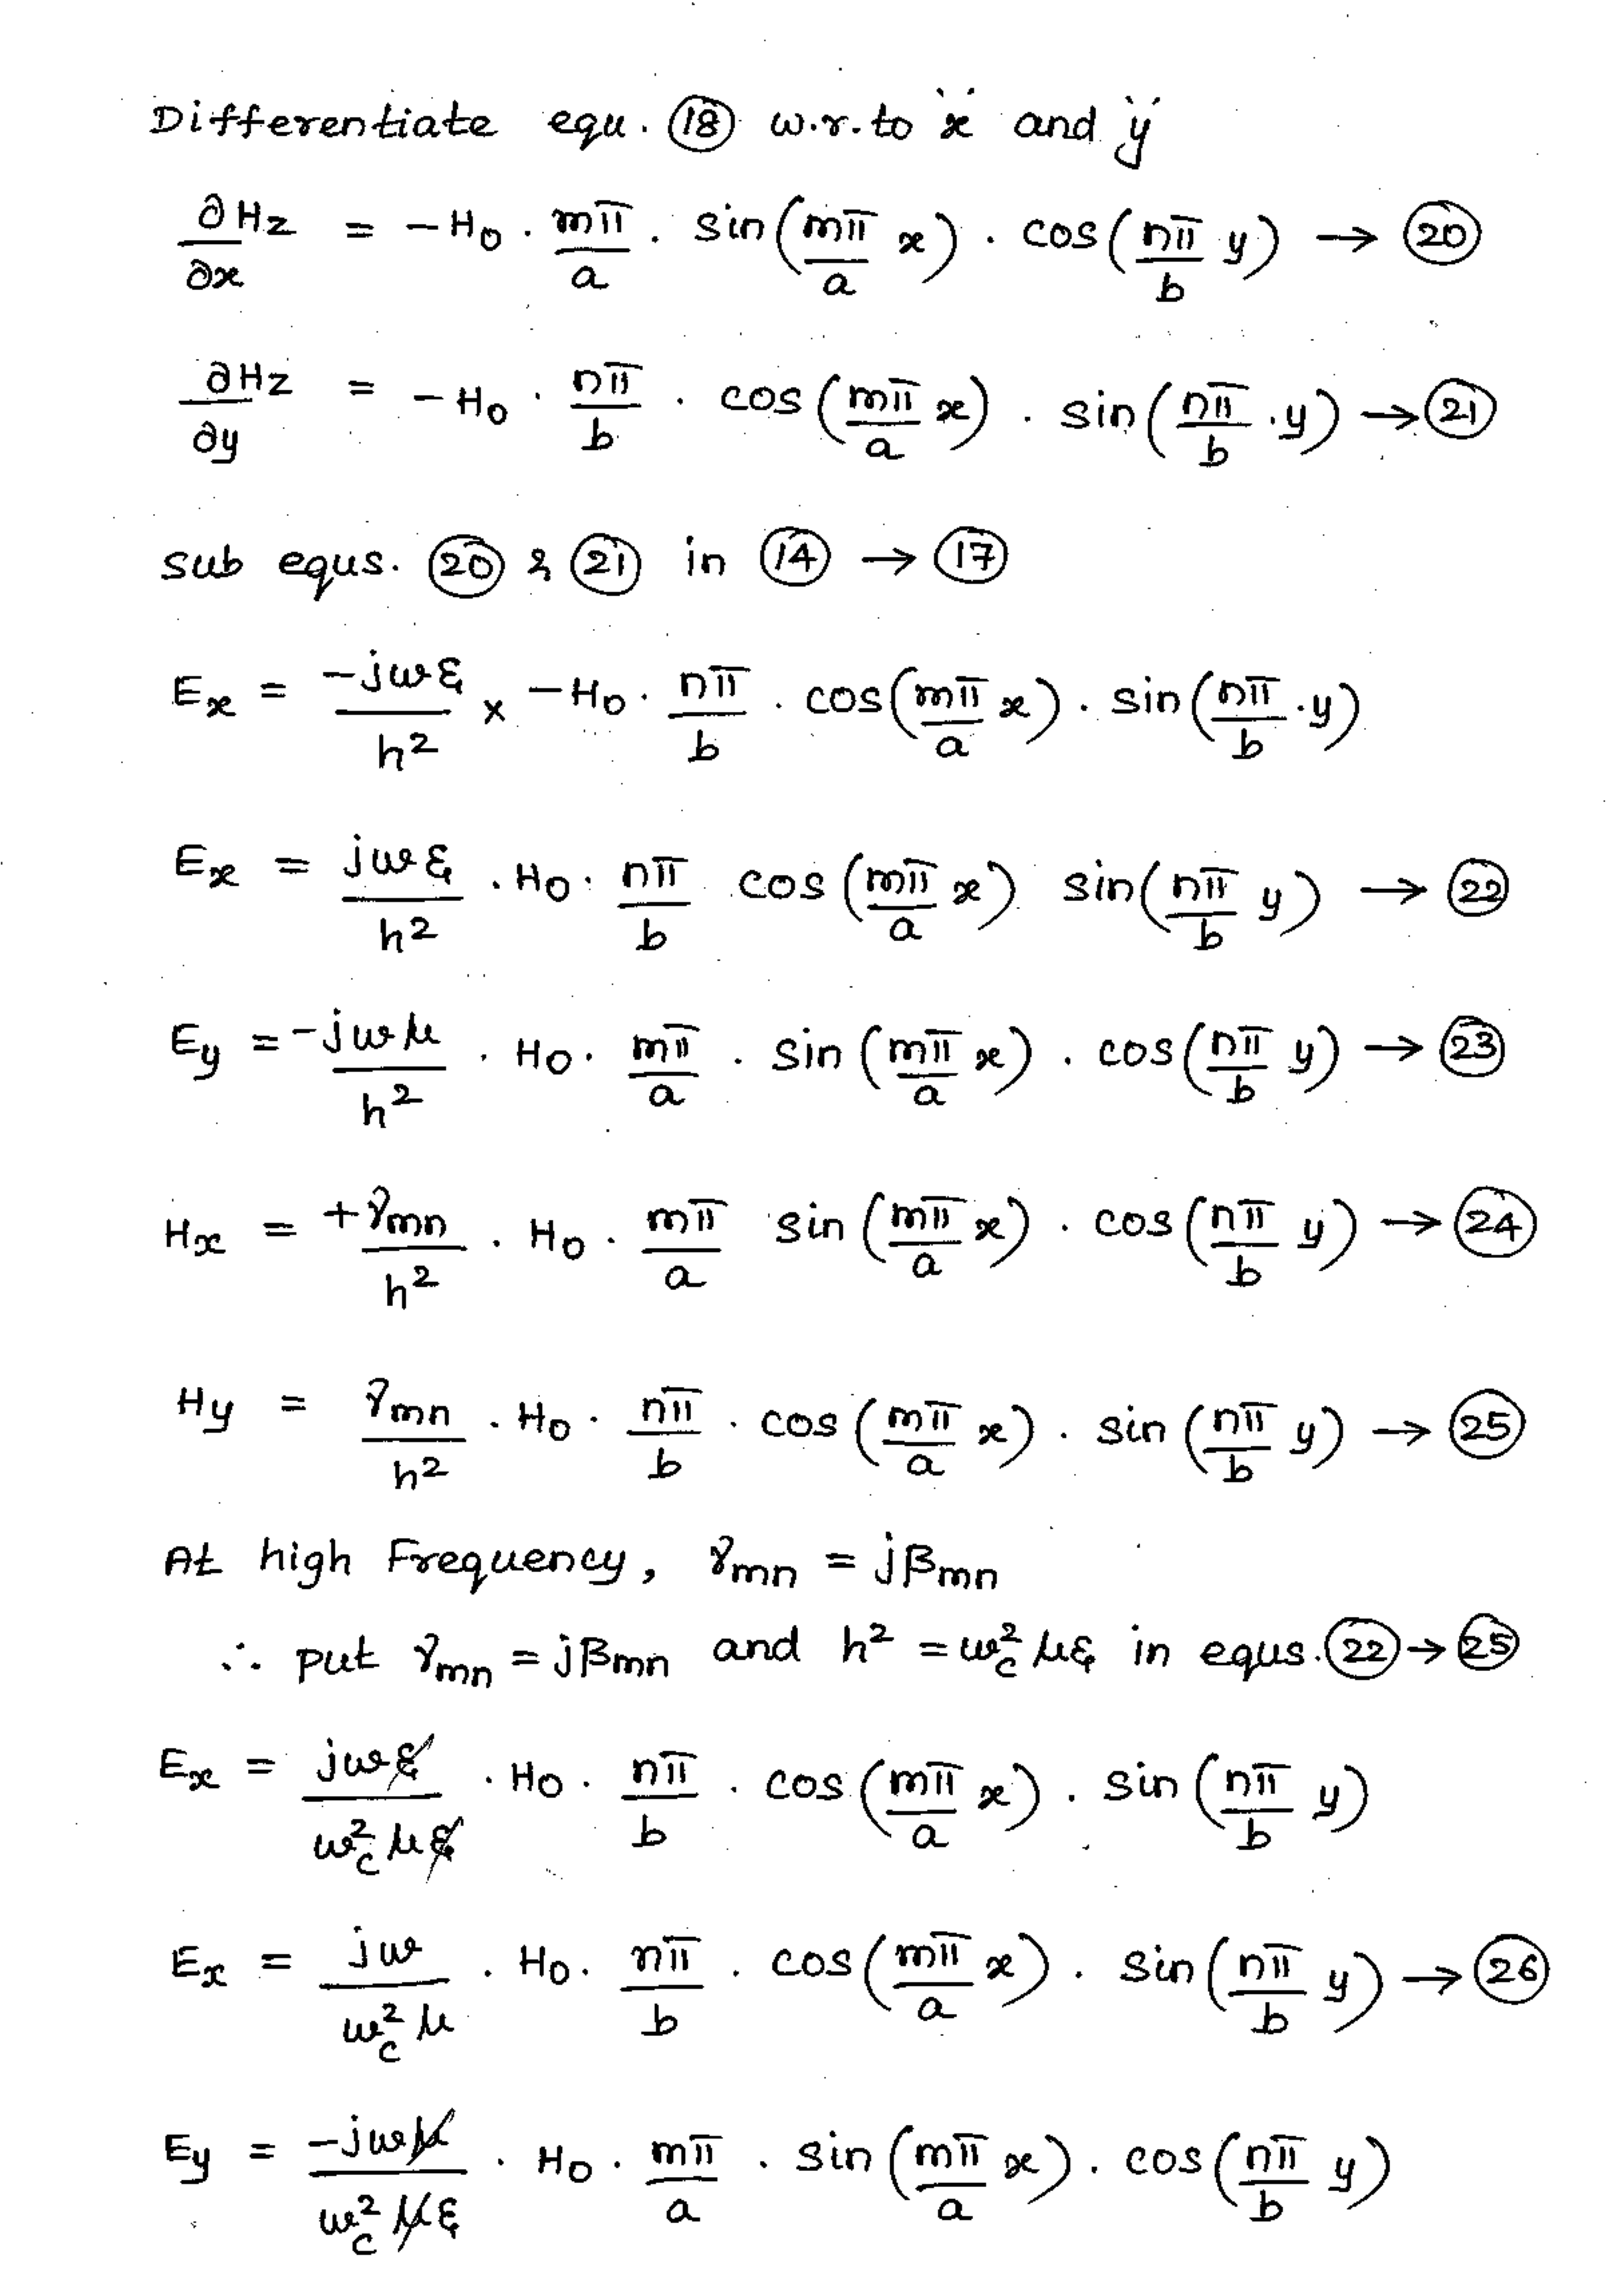 Differentiate equ. (18) w.r.to 'x' and 'y'
∂Hz/∂x = -H₀ · mπ/a · sin(mπ/a x) · cos(nπ/b y) → (20)
∂Hz/∂y = -H₀ · nπ/b · cos(mπ/a x) · sin(nπ/b · y) → (21)
sub equs. (20) & (21) in (14) → (17)
Ex = -jωε/h² × -H₀ · nπ/b · cos(mπ/a x) · sin(nπ/b · y)
Ex = jωε/h² · H₀ · nπ/b cos(mπ/a x) sin(nπ/b y) → (22)
Ey = -jωμ/h² · H₀ · mπ/a · sin(mπ/a x) · cos(nπ/b y) → (23)
Hx = +γmn/h² · H₀ · mπ/a sin(mπ/a x) · cos(nπ/b y) → (24)
Hy = γmn/h² · H₀ · nπ/b · cos(mπ/a x) · sin(nπ/b y) → (25)
At high Frequency, γmn = jβmn
∴ put γmn = jβmn and h² = ωc² με in equs. (22) → (25)
Ex = jωε/ωc² με · H₀ · nπ/b · cos(mπ/a x) · sin(nπ/b y)
Ex = jω/ωc² μ · H₀ · nπ/b · cos(mπ/a x) · sin(nπ/b y) → (26)
Ey = -jωμ/ωc² με · H₀ · mπ/a · sin(mπ/a x) · cos(nπ/b y)